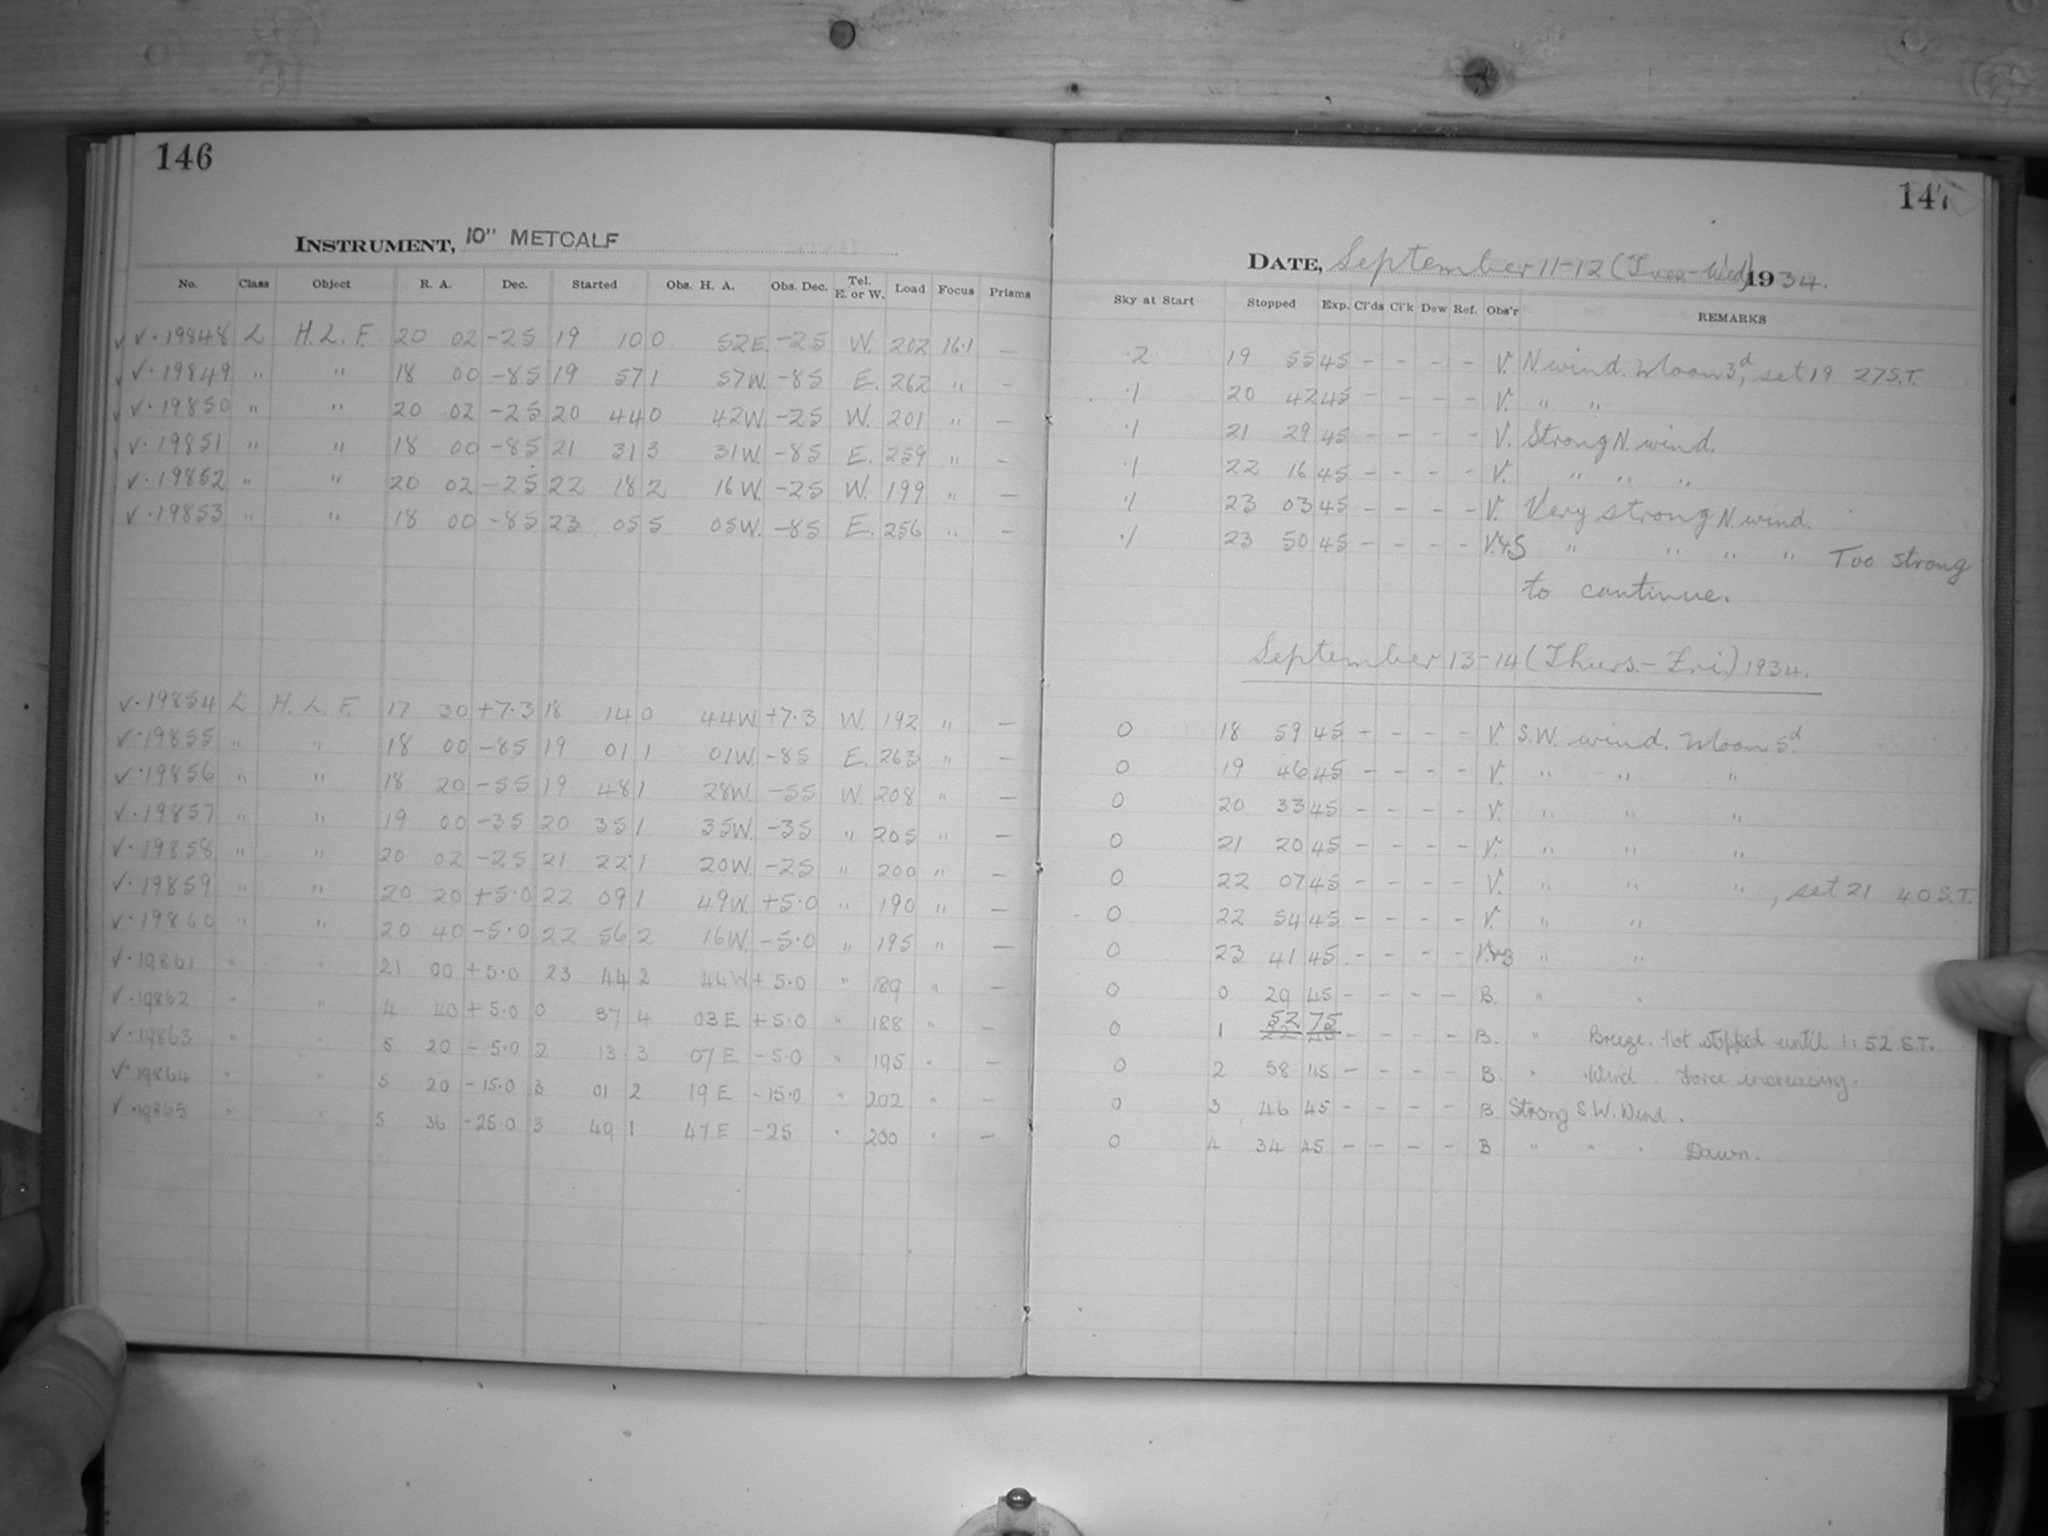 146
INSTRUMENT, 10" METCALF
No. Class Object R. A. Dec. Started Obs. H. A. Obs. Dec. Tel. E. or W. Load Focus Prisms
✓ V. 19848 L H. L. F. 20 02 -25 19 10 0 52E. -25 W. 202 16.1 —
✓ V. 19849 " " 18 00 -85 19 57 1 57W. -85 E. 262 " —
✓ V. 19850 " " 20 02 -25 20 44 0 42W. -25 W. 201 " —
✓ V. 19851 " " 18 00 -85 21 31 3 31W. -85 E. 259 " —
V. 19852 " " 20 02 -25 22 18 2 16W. -25 W. 199 " —
V. 19853 " " 18 00 -85 23 05 5 05W. -85 E. 256 " —
V. 19854 L H. L. F. 17 30 +7.3 18 14 0 44W. +7.3 W. 192 " —
V. 19855 " " 18 00 -85 19 01 1 01W. -85 E. 263 " —
V. 19856 " " 18 20 -55 19 48 1 28W. -55 W. 208 " —
V. 19857 " " 19 00 -35 20 35 1 35W. -35 " 205 " —
V. 19858 " " 20 02 -25 21 22 1 20W. -25 " 200 " —
V. 19859 " " 20 20 +5.0 22 09 1 49W. +5.0 " 190 " —
V. 19860 " " 20 40 -5.0 22 56 2 16W. -5.0 " 195 " —
V. 19861 " " 21 00 +5.0 23 44 2 44W +5.0 " 189 " —
V. 19862 " " 4 40 +5.0 0 37 4 03E +5.0 " 188 " —
V. 19863 " " 5 20 -5.0 2 13 3 07E -5.0 " 195 " —
V. 19864 " " 5 20 -15.0 3 01 2 19E -15.0 " 202 " —
V. 19865 " " 5 36 -25.0 3 49 1 47E -25 " 200 " —
147
DATE, September 11-12 (Tues-Wed) 1934.
Sky at Start Stopped Exp. Cl'ds Cl'k Dew Ref. Obs'r REMARKS
.2 19 55 45 - - - - V. N wind. Moon 3d, set 19 27 S.T.
.1 20 42 45 - - - - V. " "
.1 21 29 45 - - - - V. Strong N. wind.
.1 22 16 45 - - - - V. " " "
.1 23 03 45 - - - - V. Very strong N. wind.
.1 23 50 45 - - - - V.&S " " " " Too strong
to continue.
September 13-14 (Thurs.-Fri.) 1934.
0 18 59 45 - - - - V. S.W. wind. Moon 5d.
0 19 46 45 - - - - V. " " "
0 20 33 45 - - - - V. " " "
0 21 20 45 - - - - V. " " "
0 22 07 45 - - - - V. " " ", set 21 40 S.T.
0 22 54 45 - - - - V. " "
0 23 41 45 - - - - V.&B " "
0 0 29 45 - - - - B. " "
52 75
0 1 22 45 - - - - B. " Breeze. Not stopped until 1:52 S.T.
0 2 58 45 - - - - B. " Wind. Force increasing.
0 3 46 45 - - - - B Strong S.W. Wind.
0 4 34 45 - - - - B " " " Dawn.